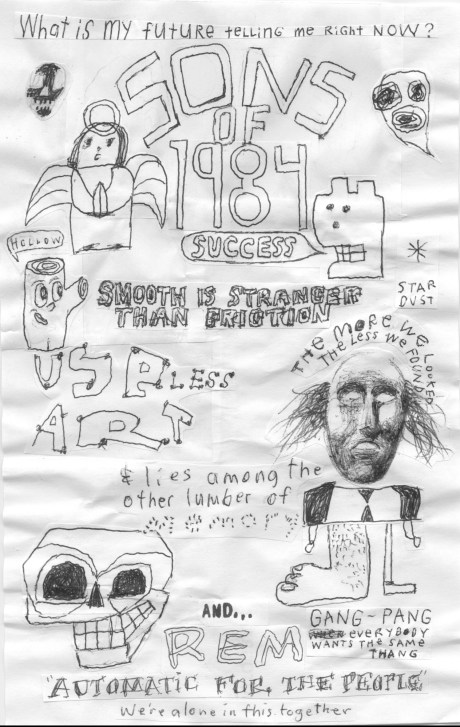 What is my future telling me Right NOW?
SONS
OF
1984
SUCCESS
HOLLOW
STAR
DUST
SMOOTH IS STRANGER
THAN FRICTION
THE MORE WE LOOKED
THE LESS WE FOUND
USPLESS
ART
& lies among the
other lumber of
memory
AND...
REM
GANG-PANG
EVERYBODY
WANTS THE SAME
THANG
"AUTOMATIC FOR THE PEOPLE"
We're alone in this together